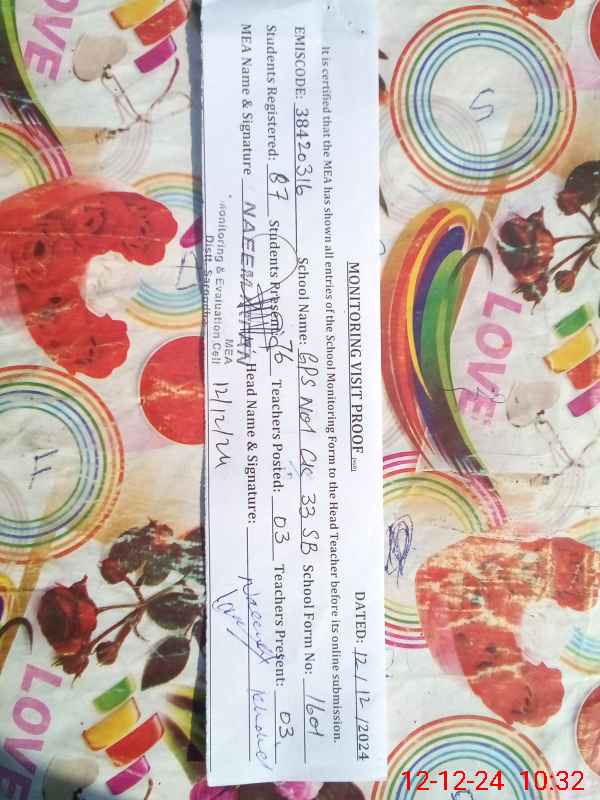 MONITORING VISIT PROOF
DATED: 12/12/2024
It is certified that the MEA has shown all entries of the School Monitoring Form to the Head Teacher before its online submission.
EMISCODE: 38420316 School Name: GPS No1 CK 33 SB School Form No: 1601
Students Registered: 87 Students Present: 76 Teachers Posted: 03 Teachers Present: 03
MEA Name & Signature NAEEM Head Name & Signature:
MEA 12/12/24
Monitoring & Evaluation Cell
Distt. Sargodha
LOVE
LOVE
LOVE
LOVE
12-12-24 10:32